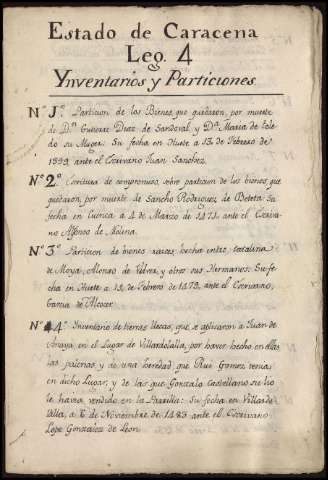 Estado de Caracena
Leg. 4
Ynventarios y Particiones
Nº 1º. Particion de los Bienes, que quedaron, por muerte
de Dn. Gutierre Diaz de Sandoval, y Dª. Maria de Tole
do su Muger. Su fecha en Huete a 13 de Febrero de
ante el Escrivano Juan Sanchez.
Nº 2º. Escritura de compromiso, sobre particion de los bienes, que
quedaron, por muerte de Sancho Rodriguez, de Beteta: Su
fecha en Cuenca a 4 de Marzo de 1471. ante el Escriva
no Alfonso de Molina.
Nº 3º. Particion de bienes raices, hecha entre Catalina
de Moya, Alonso de y otros sus Hermanos. Su fe
cha en Huete a de Febrero de 1478. ante el Escrivano,
Garcia de Alcocer.
Nº 4º. Inventario de tierras llecas, que se aplicaron a Juan de
Anaya, en el Lugar de Villardelalla, por haver hecho en ellas
las y de una heredad, que Rui Gomez tenia
en dicho Lugar; y de las que Gonzalo Castellano se
le havia vendido en la Su fecha en Villarde
lalla, a 6 de Noviembre de 1483 ante el Escrivano
Lope Gonzalez de Leon.